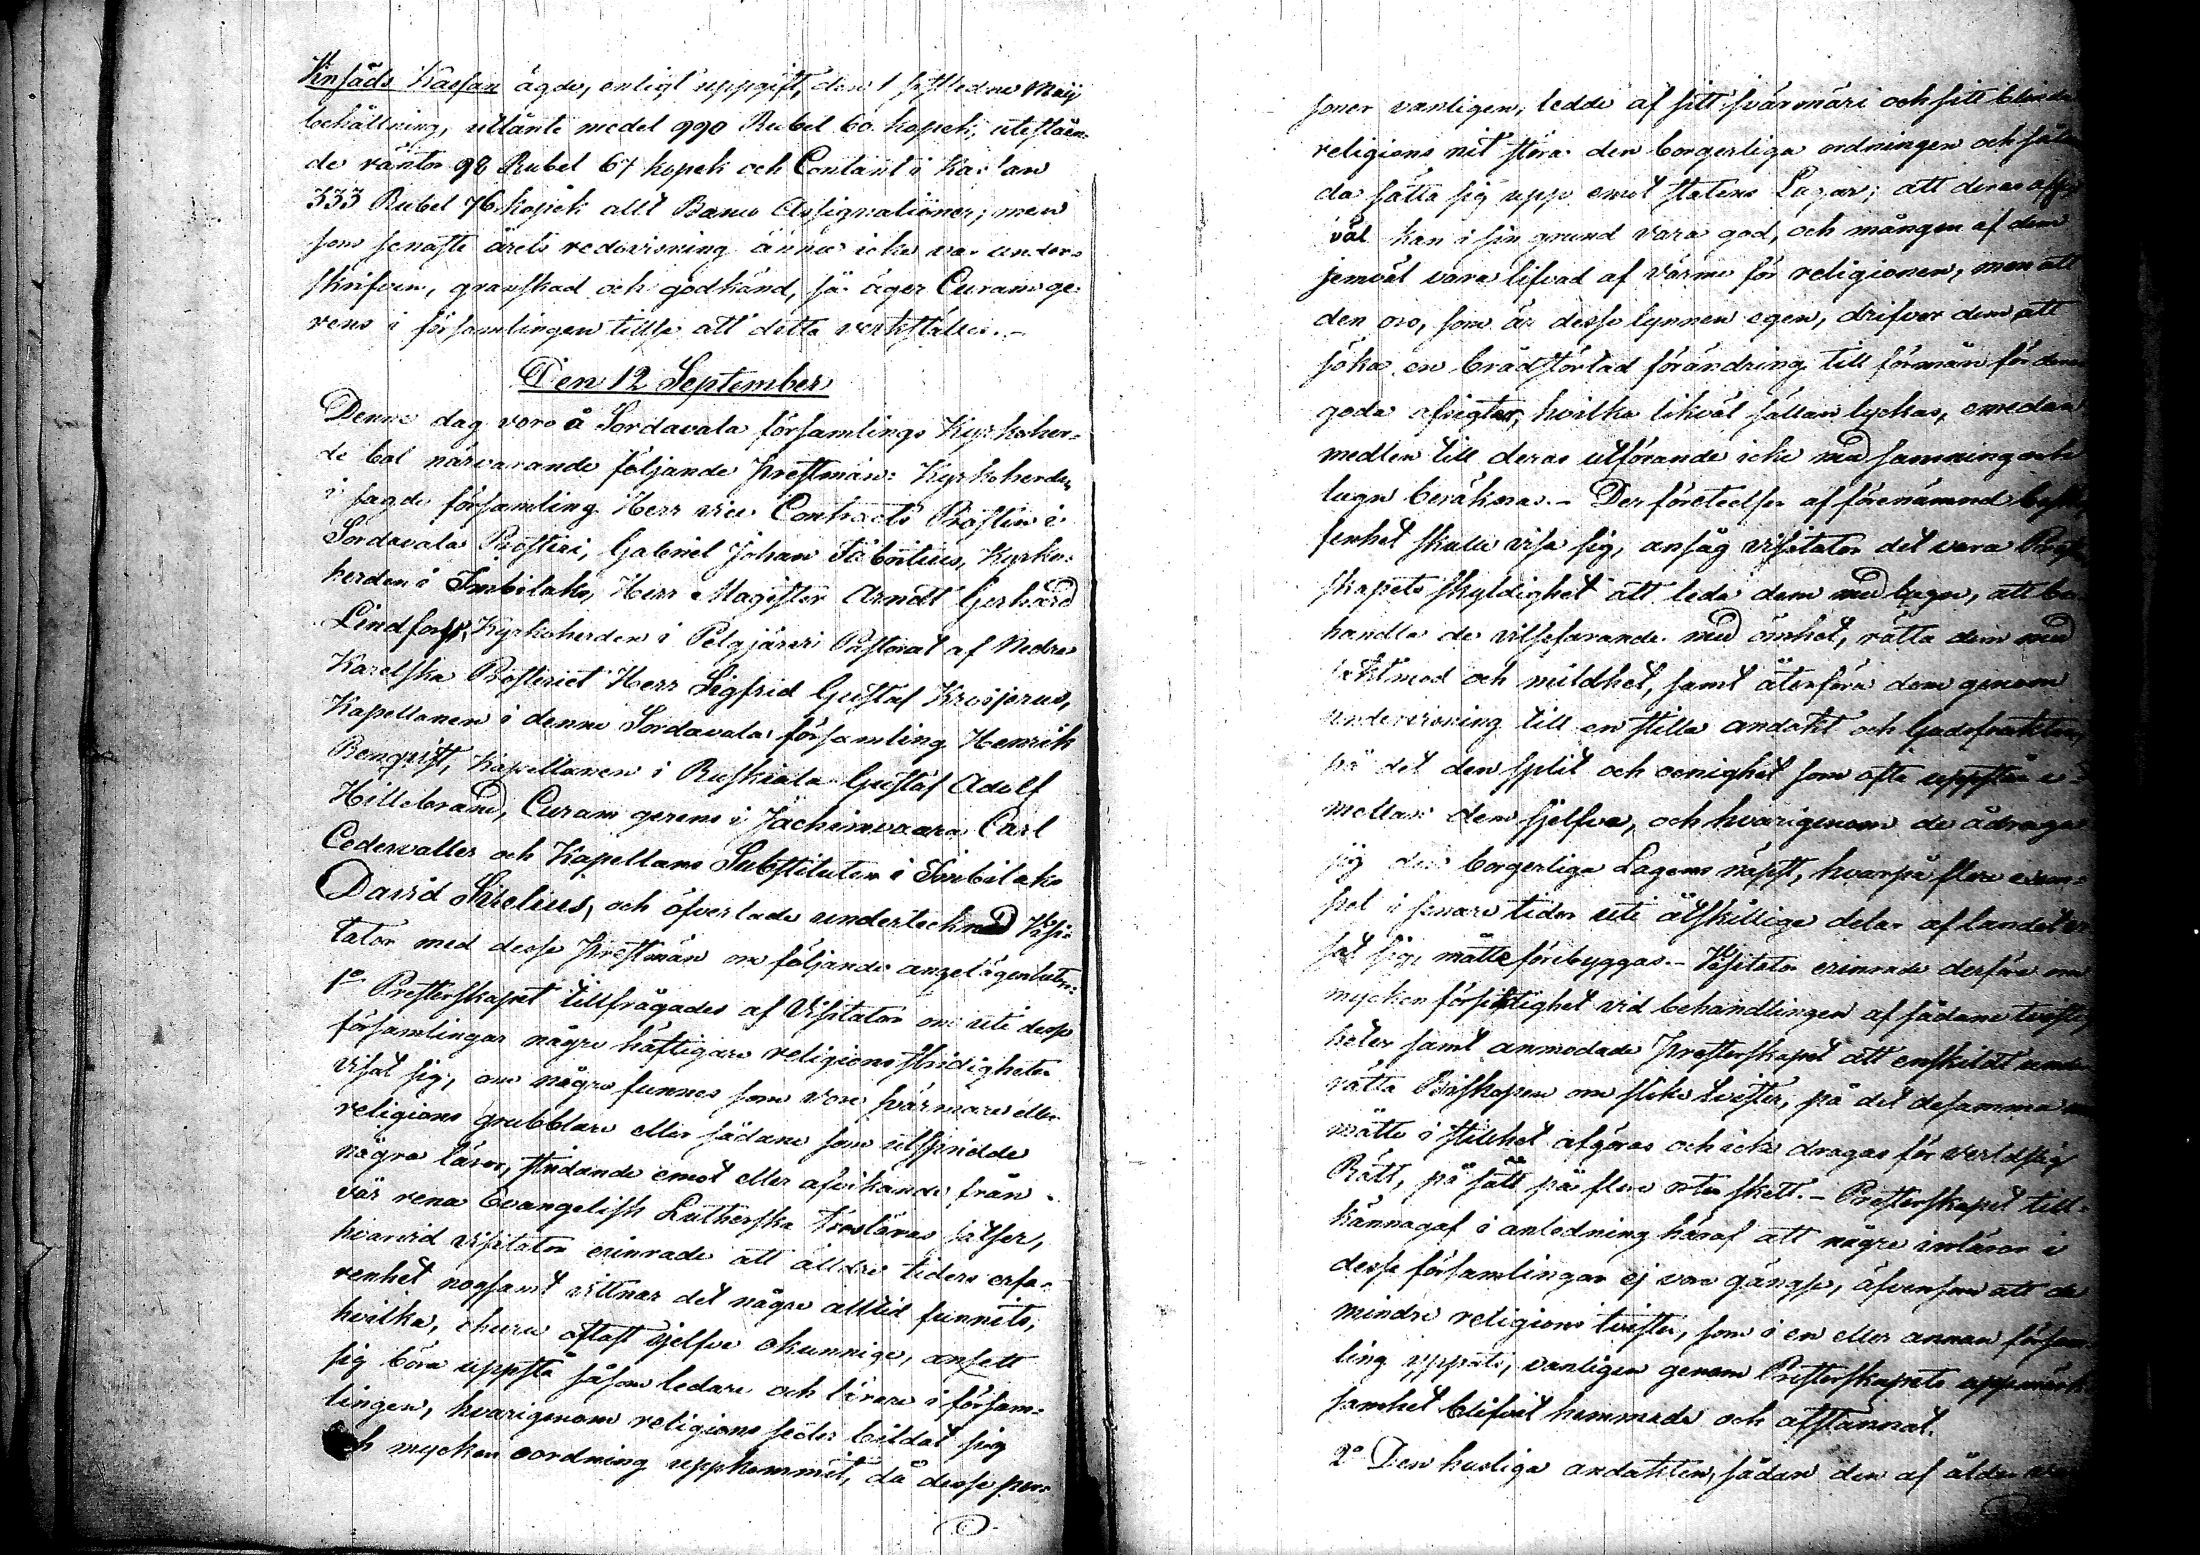 Knsäds Kassan ägde, enligt uppgift, den 1 sistledne Maij
behållning, utlänte medel 990 Rubel 60 kopek, uteståen-
de räntor 98 Rubel 67 kopek och Contant i Kassan
333 Rubel 76 kopek allt Banco Assignationer; men
som senaste årets redovisning ännu icke var under-
skrifven, granskad och godkänd, så äger Curam ge-
rens i församlingen tillse att detta verkställes.-
Den 12 September
Denne dag voro å Sordavala församlings Kyrkoher-
de bol närvarande följande Prestmän: Kyrkoherden
i sagde församling Herr vice Contracts Prosten i
Sordavala Prosteri, Gabriel Johan Fabritius, Kyrko-
herden i Imbilaks, Herr Magister Arndt Gerhard
Lindforss, Kyrkoherden i Pelgjärvi Pastorat af Nedre
Karelska Prosteriet Herr Sigfrid Gustaf Krogerus,
Kapellanen i denna Sordavala församling Henrik
Renqvist, Kapellanen i Ruskiala Gustaf Adolf
Hillebrand, Curam gerens i Jächimvaara Carl
Cederwaller och Kapellans Substituten i Imbilaks
David Sirelius, och öfverlade undertecknad Visi-
tator med desse Prestmän om följande angelägenheter:
1o Presterskapet tillfrågades af Visitator om uti desse
församlingar någre häftigare religions stridigheter
visat sig, om någre funnes som vore svärmare eller
religions grubblare eller sådane som utspridde
några läror, stridande emot eller afvikande från
vår rena Evangelisk Lutherska Trosläras satser,
hvarvid visitator erinrade att äldre tiders erfa-
renhet nogsamt vittnar det någre alltid funnits,
hvilka, ehuru oftast sjelfve okunnige, ansett
sig böra uppstå såsom ledare och lärare i försam-
lingen, hvarigenom religions secter bildat sig
och mycken oordning uppkommit, då desse per-
soner vanligen, ledde af sitt svärmäri och sitt blinda
religions nit störa den borgerliga ordningen och såle
da sätta sig upp emot statens Lagar; att deras afsi
väl kan i sin grund vara god, och mången af dem
jemväl vara lifvad af värme för religionen, men att
den oro, som är desse lynnen egen, drifver dem att
söka en brådstörtad förändring till förmån för deras
goda afsigter, hvilka likväl sällan lyckas, emedan
medlen till deras utförande icke med sanning och
lugn beräknas.- Der företeelse af förenämnd beskaf
fenhet skulle visa sig, ansåg visitator det vara Prest
skapets skyldighet att leda dem med lugn, att be
handla de vilsefarande med ömhet, rätta dem med
saktmod och mildhet, samt återföra dem genom
undervisning till en stilla andakt och Gudsfruktan,
på det den split och oenighet som ofta uppstår e-
mellan dem sjelfva, och hvarigenom de ådraga
sig den borgerliga Lagens näpst, hvarpå flere exem-
pel i senare tider uti åtskillige delar af landet te
sat sig, måtte förebyggas.- Visitator erinrade derföre om
mycken försigtighet vid behandlingen af sådane tvistig
heter samt anmodade Presterskapet att enskildt under
rätta Biskopen om slike tvister, på det desamma m
måtte i stillhet afgöras och icke dragas för verldslig
Rätt, på sätt på flere orter skett.- Presterskapet till-
kännagaf i anledning häraf att någre irrläror i
desse församlingar ej vore gängse, äfvensom att de
mindre religions tvister, som i en eller annan försam
ling yppats, vanligen genom Presterskapets uppmärk
samhet blifvit hemmade och afstannat.
2o Den husliga andakten, sådan den af ålder